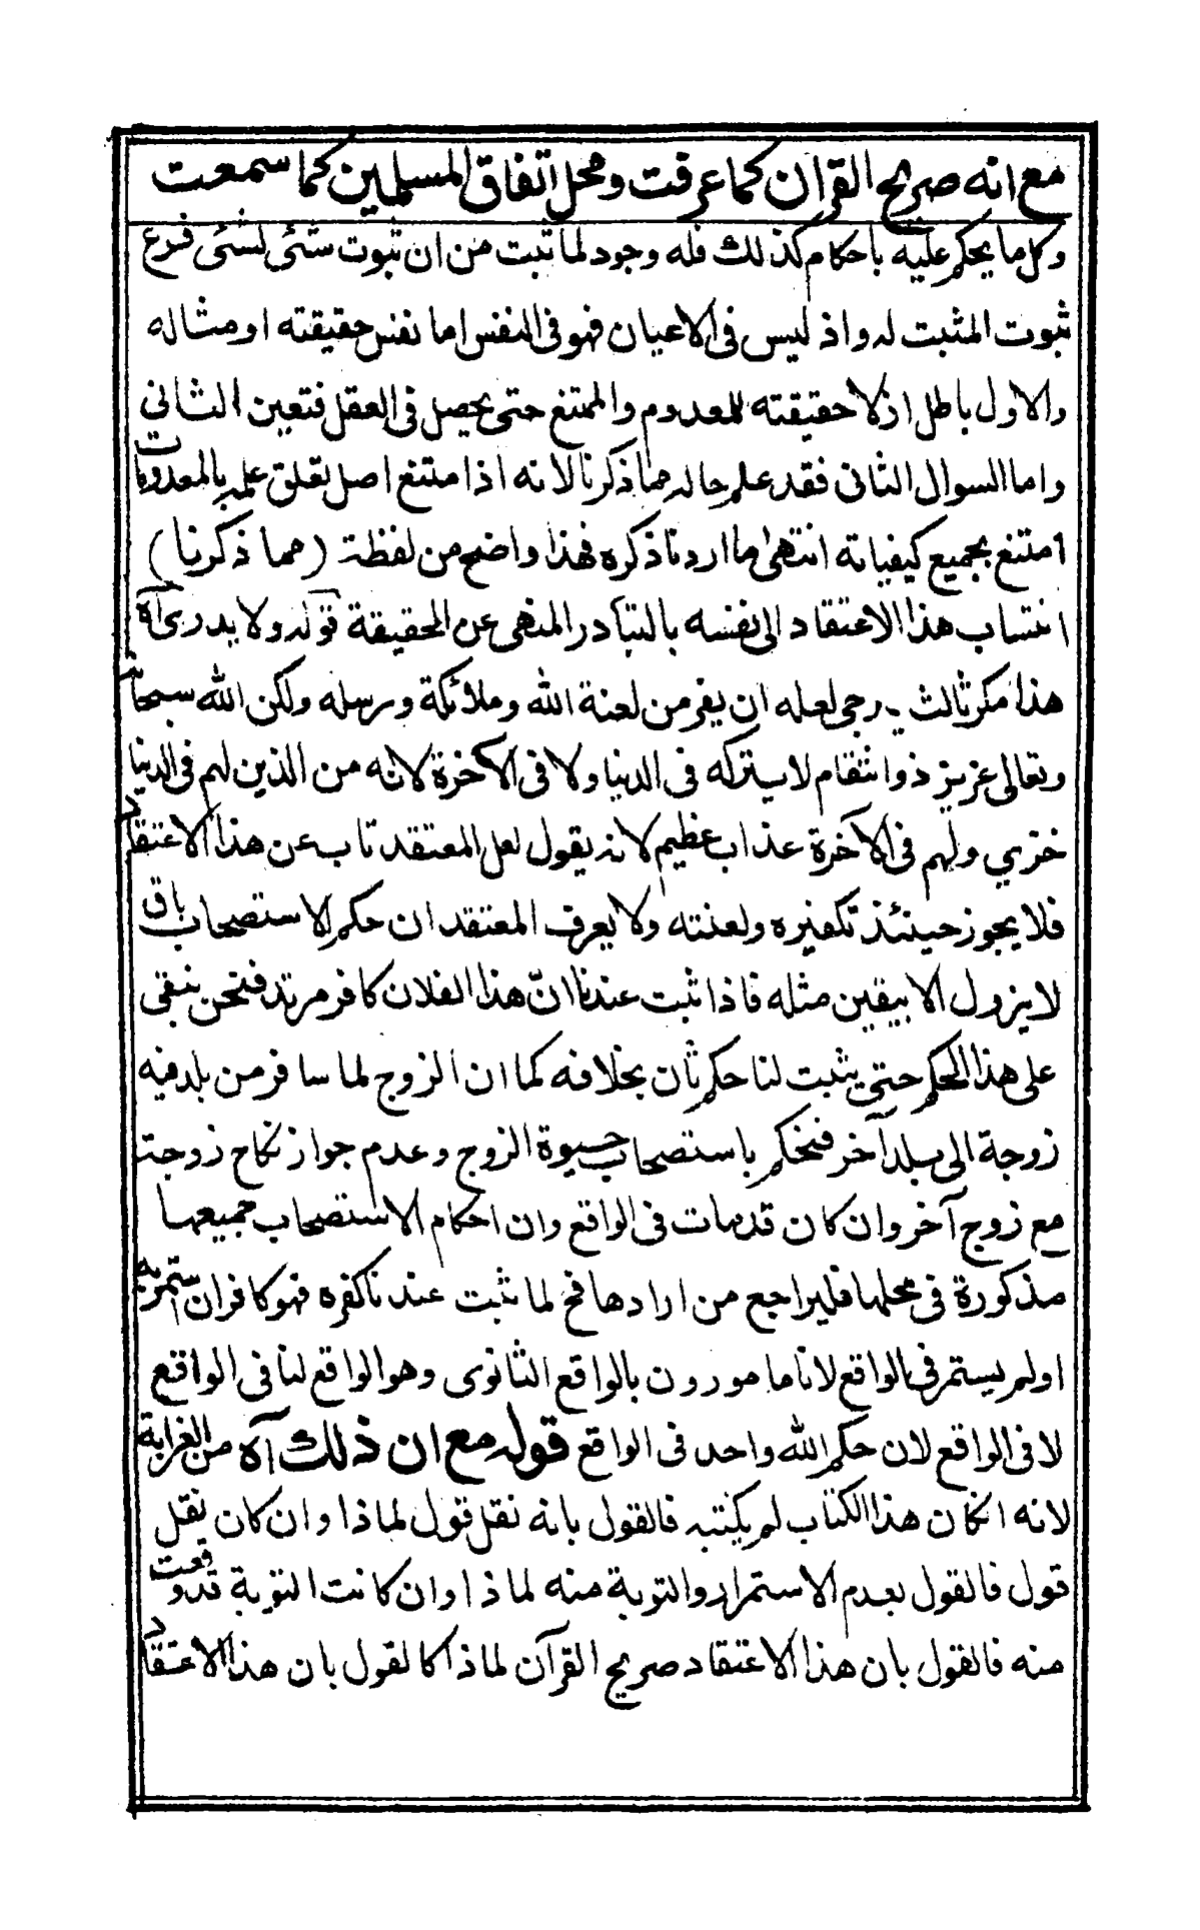 مع انه صريح القرآن كما عرفت ومحل اتفاق المسلمين كما سمعت
وكل ما يحكم عليه باحكام كذلك فله وجود لما ثبت من ان ثبوت شئي لشئي فرع
ثبوت المثبت له واذ ليس فى الاعيان فهو فى النفس اما نفس حقيقته او مثاله
والاول باطل اذ لا حقيقته للمعدوم والممتنع حتى يحصل فى العقل فتعين الثانى
واما السوال الثانى فقد علم حاله مما ذكرنا لانه اذا متنع اصل تعلق علمه بالمعدومات
امتنع بجميع كيفياته انتهى ما اردنا ذكره فهذا واضح من لفظة (مما ذكرنا)
انتساب هذا الاعتقاد الى نفسه بالتبادر المنهى عن الحقيقة قوله ولا يدرى آه
هذا مكر ثالث يرجى لعله ان يفر من لعنة الله وملائكة ورسله ولكن الله سبحانه
وتعالى عزيز ذو انتقام لا يتركه فى الدنيا ولا فى الآخرة لانه من الذين لهم فى الدنيا
خزي ولهم فى الآخرة عذاب عظيم لانه يقول لعل المعتقد تاب عن هذا الاعتقاد
فلا يجوز حينئذ تكفيره ولعنته ولا يعرف المعتقد ان حكم الاستصحاب باق
لا يزول الا بيقين مثله فاذا ثبت عندنا انّ هذا الفلان كافر مرتد فنحن نبقى
على هذا الحكم حتى يثبت لنا حكم ثان بخلافه كما ان الزوج لما سافر من بلد فيه
زوجة الى بلد آخر فنحكم باستصحاب حيوة الزوج وعدم جواز نكاح زوجته
مع زوج آخر وان كان قد مات فى الواقع وان احكام الاستصحاب جميعها
مذكورة فى محلها فليراجع من ارادها فح لما ثبت عندنا كفره فهو كافر ان استمر به
اولم يستمر فى الواقع لانا ما مورون بالواقع الثانوى وهو الواقع لنا فى الواقع
لا فى الواقع لان حكم الله واحد فى الواقع قوله مع ان ذلك آه من الغرابة
لانه انكان هذا الكتاب لم يكتبه فالقول بانه نقل قول لماذا وان كان نقل
قول فالقول بعدم الاستمرار والتوبة منه لماذا وان كانت التوبة قد وقعت
منه فالقول بان هذا الاعتقاد صريح القرآن لماذا كالقول بان هذا الاعتقاد